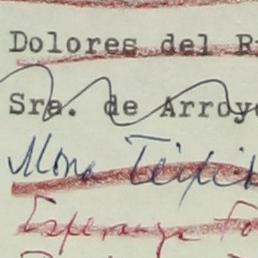 Dolores del R
Sra. de Arroy
Mona Teixi
Esperanza Fo